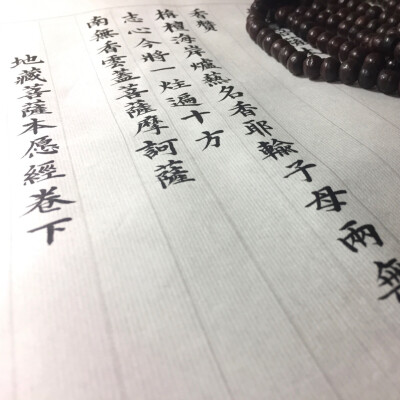 香讚
栴檀海岸爐爇名香耶輸子母兩無
志心今將一炷遍十方
南無香雲蓋菩薩摩訶薩
地藏菩薩本愿經卷下